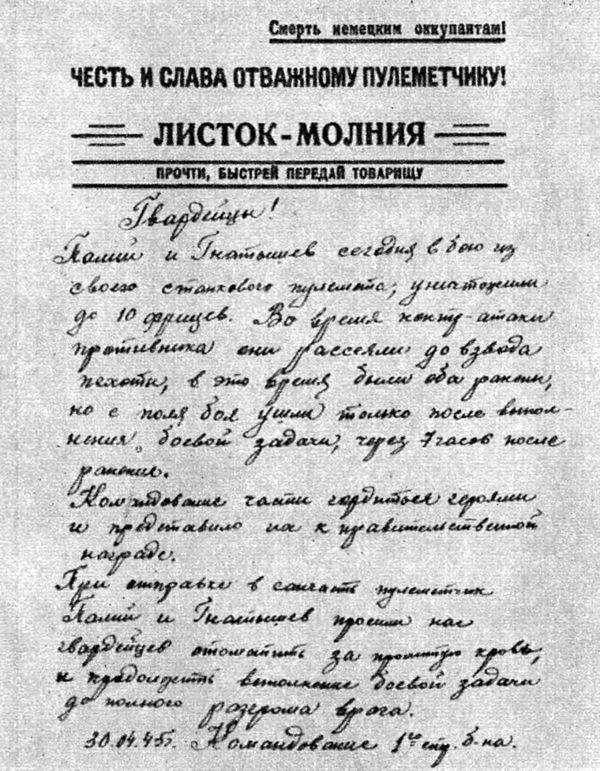 Смерть немецким оккупантам!
ЧЕСТЬ И СЛАВА ОТВАЖНОМУ ПУЛЕМЕТЧИКУ!
ЛИСТОК-МОЛНИЯ
ПРОЧТИ, БЫСТРЕЙ ПЕРЕДАЙ ТОВАРИЩУ
Гвардейцы!
Палий и Гнатышев сегодня в бою из
своего станкового пулемета, уничтожили
до 10 фрицев. Во время контр-атаки
противника они рассеяли до взвода
пехоты, в это время были оба ранены,
но с поля боя ушли только после выпол-
нения боевой задачи, через 7 часов после
ранения.
Командование части гордиться героями
и представило их к правительственной
награде.
При отправке в санчасть пулеметчик
Палий и Гнатышев просили нас
гвардейцев отомстить за пролитую кровь,
и продолжить выполнение боевой задачи
до полного разгрома врага.
30.04.45г. Командование 1го стр. б-на.